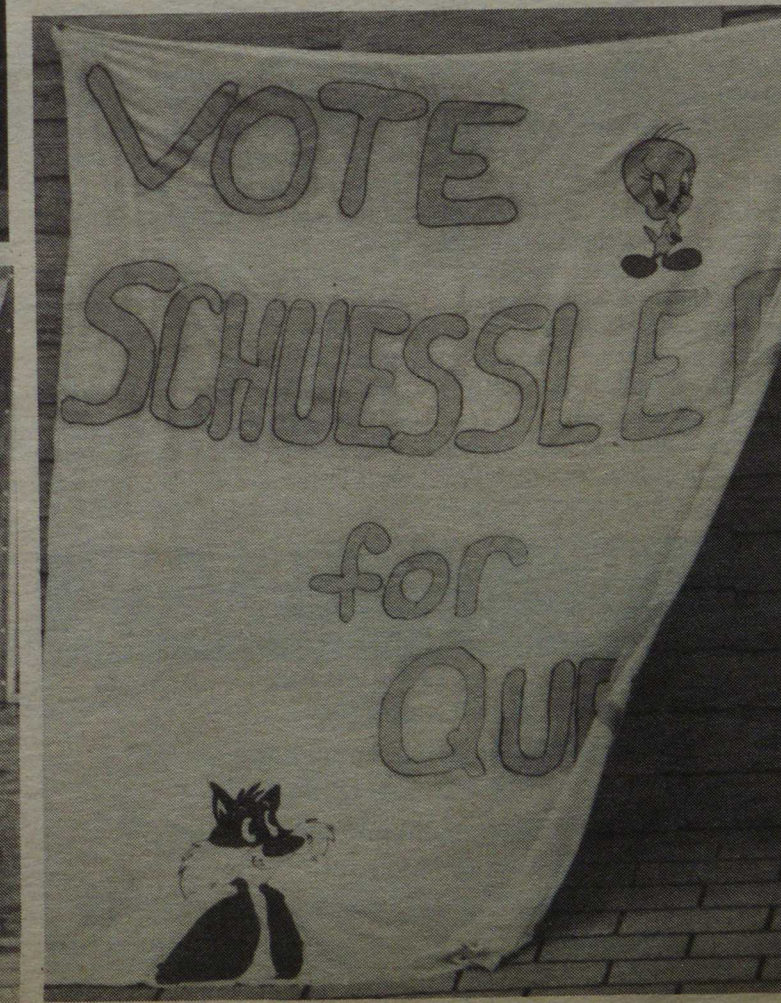 VOTE
SCHUESSLER
for
QUE